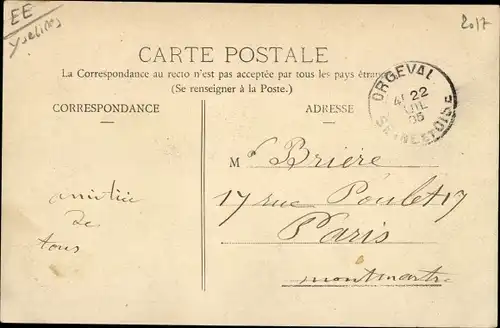 EE
Yvelines
2017
CARTE POSTALE
La Correspondance au recto n'est pas acceptée par tous les pays étran
(Se renseigner à la Poste.)
CORRESPONDANCE
ADRESSE
ORGEVAL
22
JUIL
05
SEINE ET OISE
amitié
de
tous
M Brière
17 rue Poulet 17
Paris
montmartre